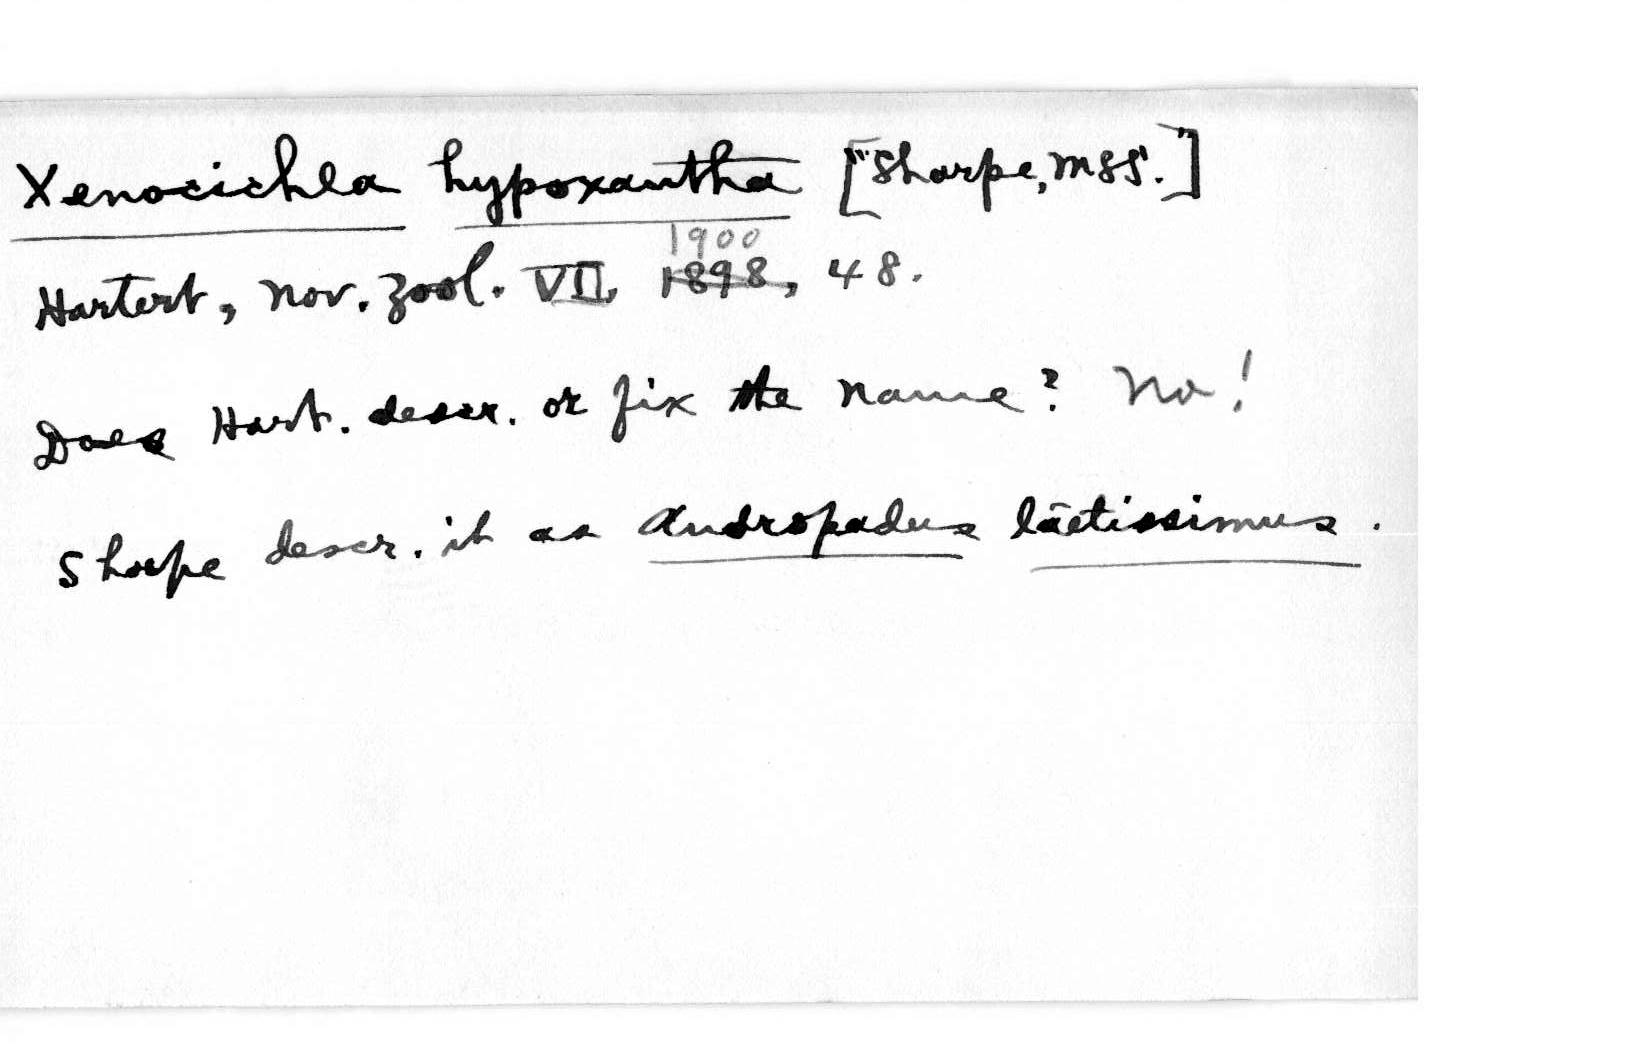 Xenocichla hypoxantha ["Sharpe, MSS."]
1900
Hartert, Nov. Zool. VII, 1898, 48.
Does Hart. descr. or fix the name? No!
Sharpe descr. it as Andropadus lætissimus.